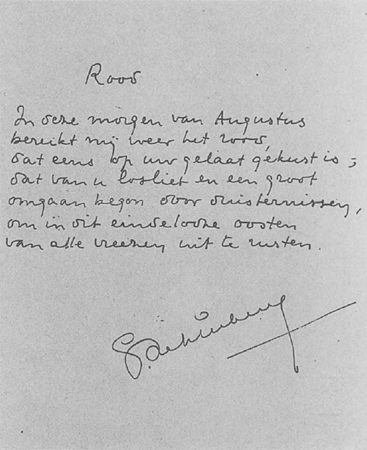 Rood
In deze morgen van Augustus
bereikt mij weer het rood,
dat eens op uw gelaat gekust is;
dat van u losliet en een groot
omgaan begon door duisternissen,
om in dit eindelooze oosten
van alle vreezen uit te rusten.